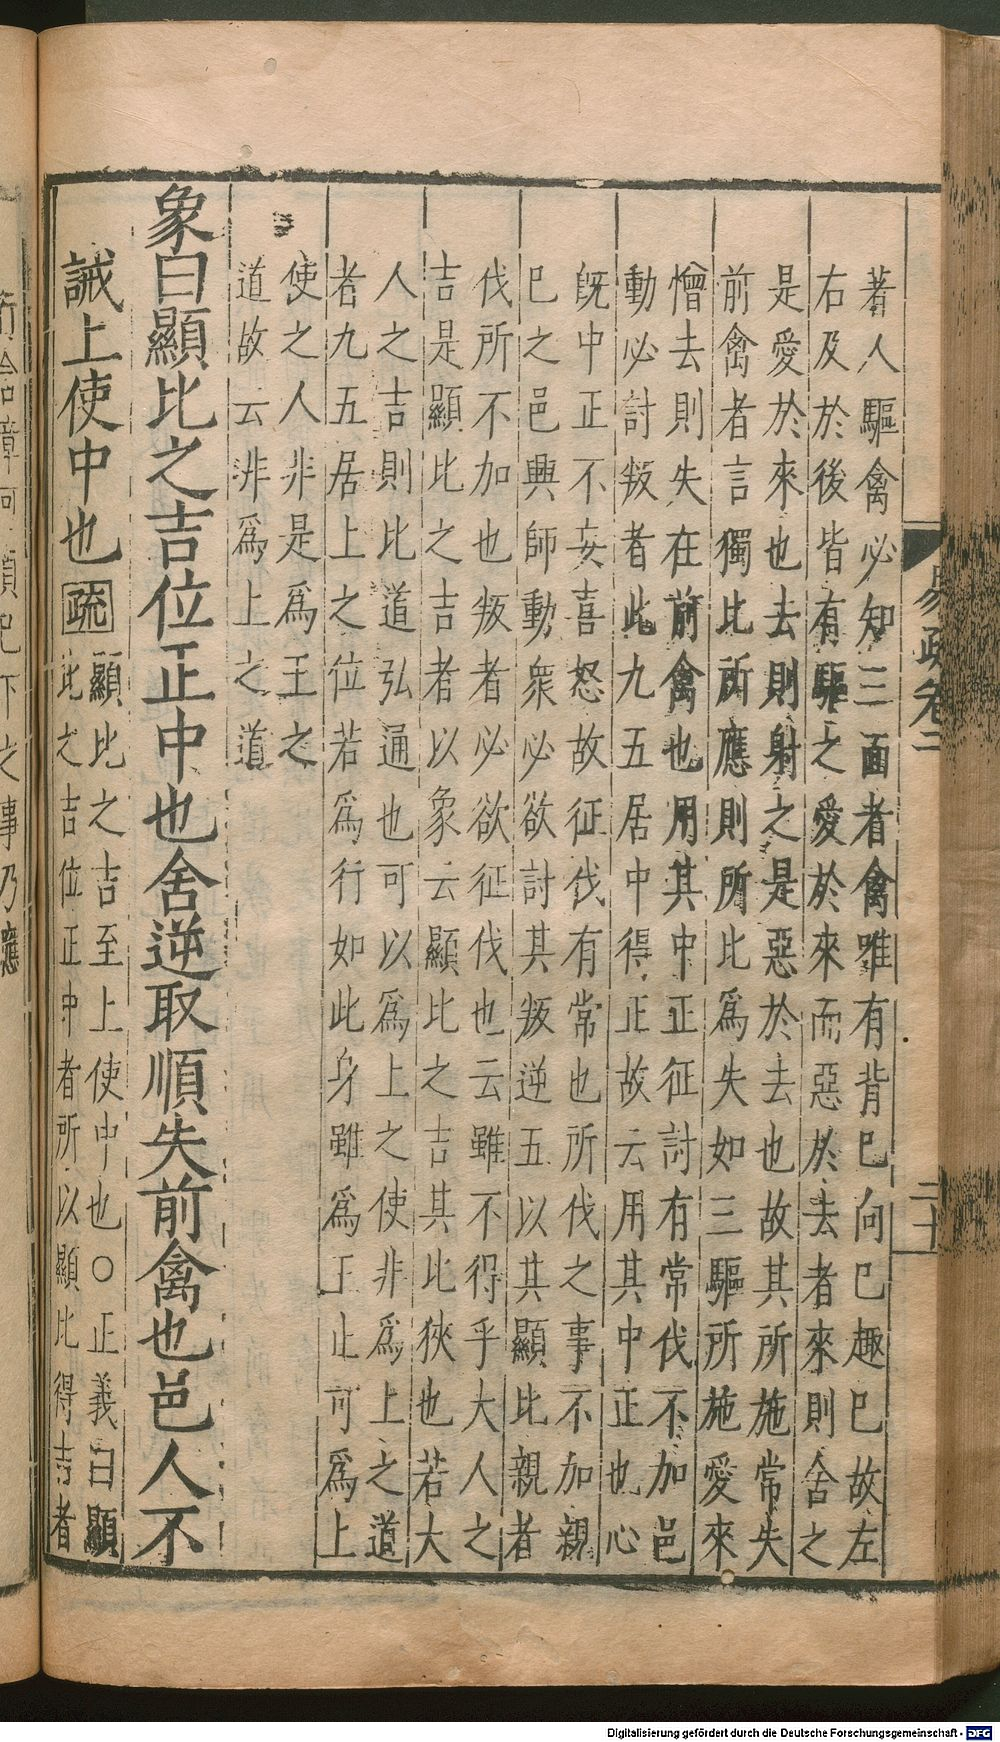 著人驅禽必知三面者禽唯有背已向已趣已故左
右及於後皆有驅之愛於來而惡於去者來則舍之
是愛於來也去則射之是惡於去也故其所施常失
前禽者言獨比所應則所比爲失如三驅所施愛來
憎去則失在前禽也用其中正征討有常伐不加邑
動必討叛者此九五居中得正故云用其中正也心
旣中正不妄喜怒故征伐有常也所伐之事不加親
已之邑興師動衆必欲討其叛逆五以其顯比親者
伐所不加也叛者必欲征伐也云雖不得乎大人之
吉是顯比之吉者以象云顯比之吉其比狹也若大
人之吉則比道弘通也可以爲上之使非爲上之道
者九五居上之位若爲行如此身雖爲王止可爲上
使之人非是爲王之
道故云非爲上之道
象曰顯比之吉位正中也舍逆取順失前禽也邑人不
誡上使中也疏顯比之吉至上使中也○正義曰顯
比之吉位正中者所以顯比得吉者
易疏卷二
二十
Digitalisierung gefördert durch die Deutsche Forschungsgemeinschaft - DFG